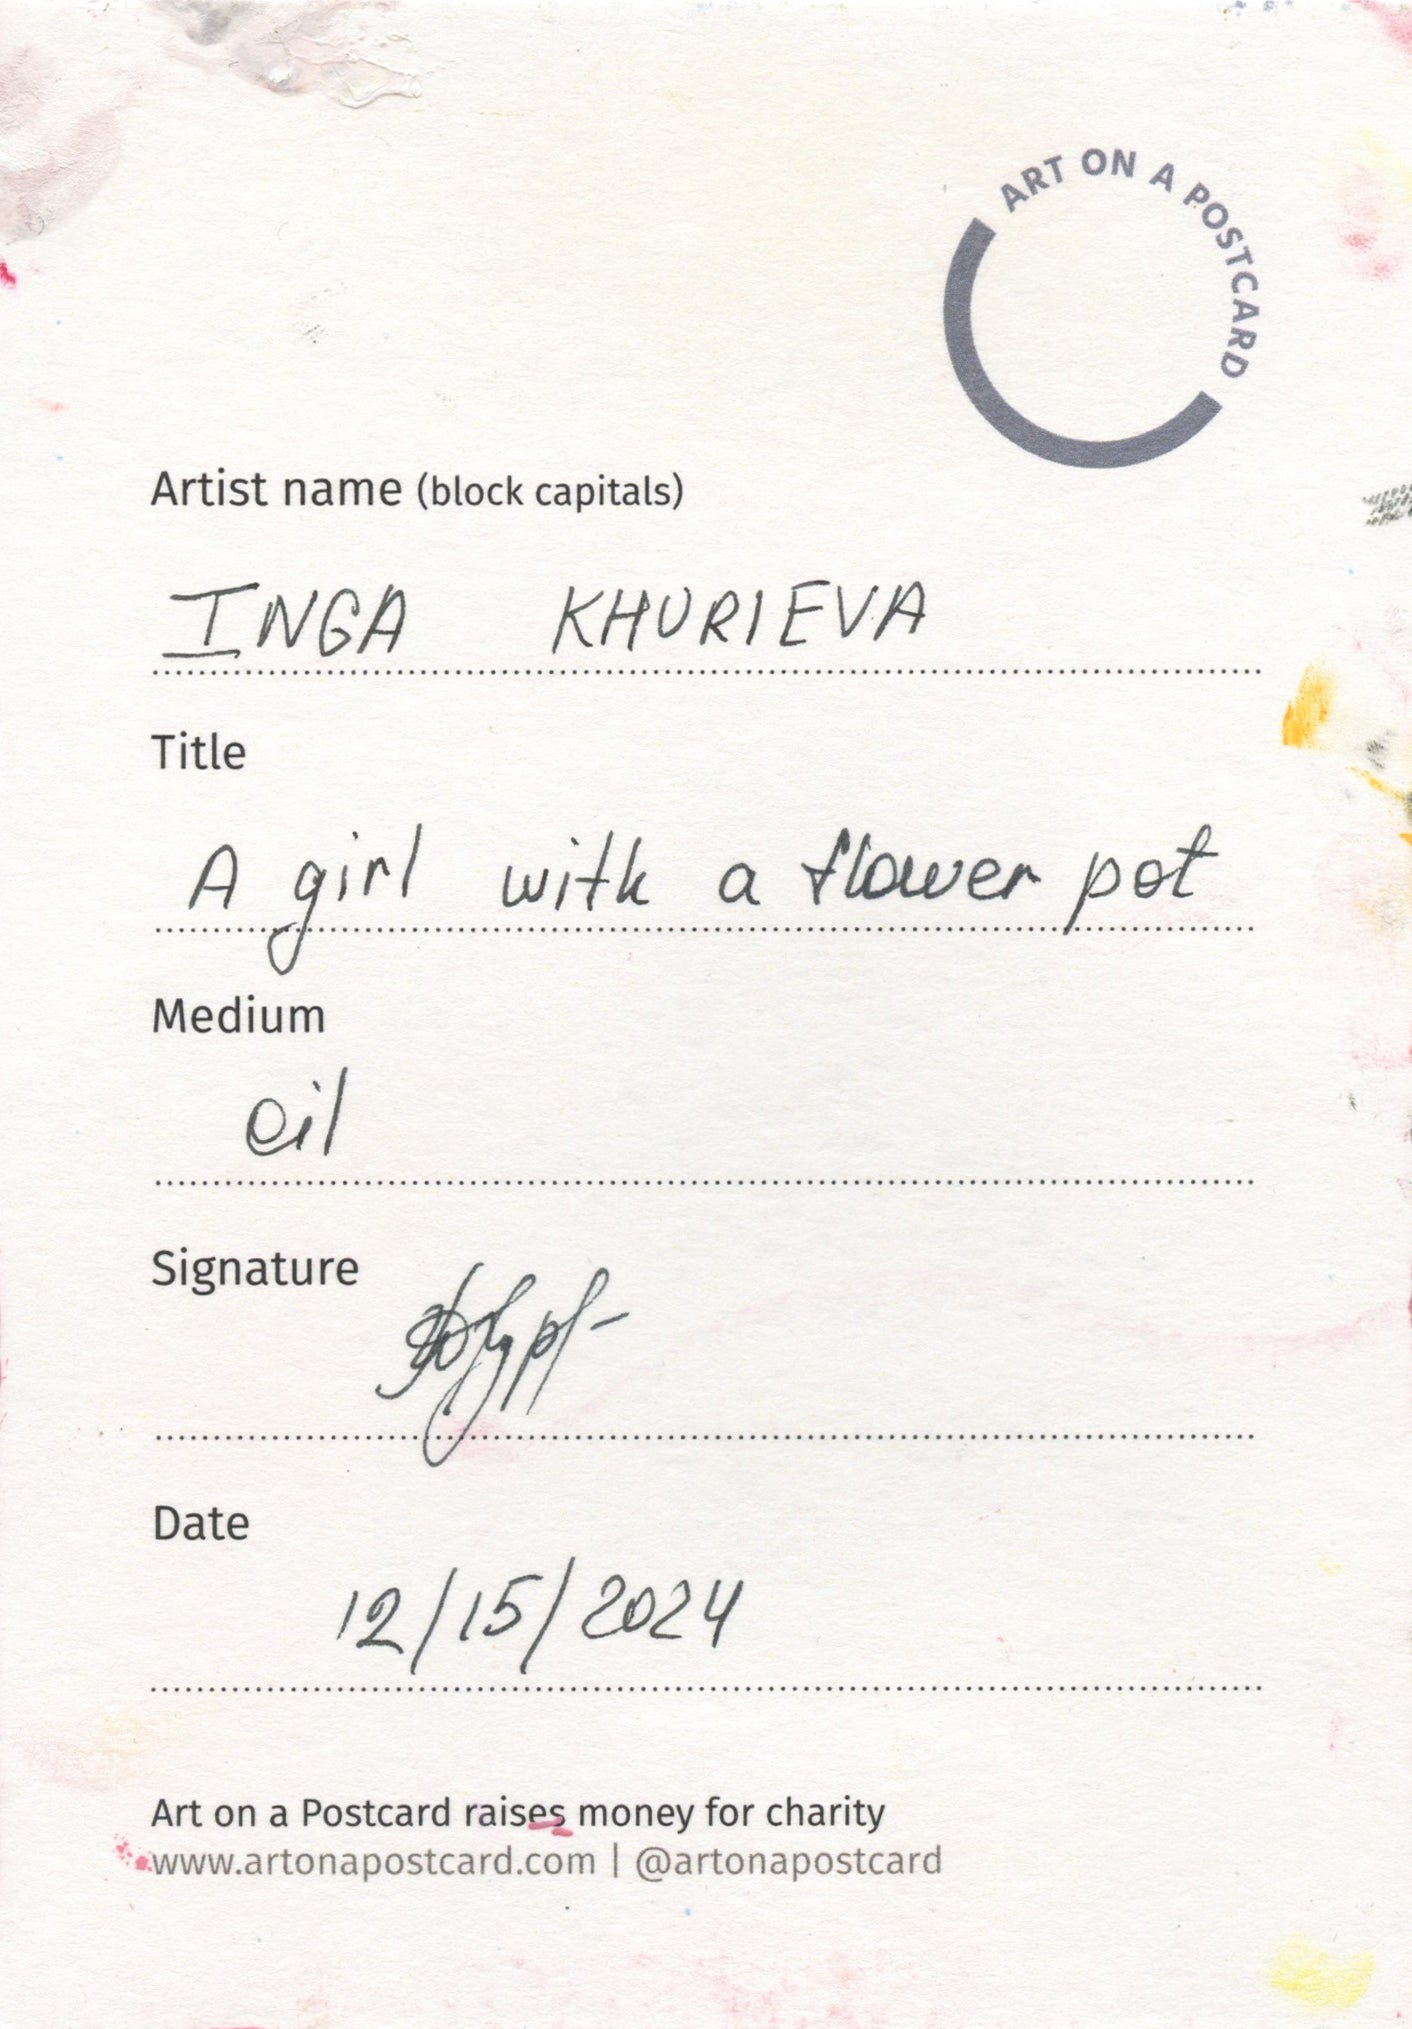 ART ON A POSTCARD
Artist name (block capitals)
INGA KHURIEVA
Title
A girl with a flower pot
Medium
oil
Signature
Date
12/15/2024
Art on a Postcard raises money for charity
www.artonapostcard.com | @artonapostcard